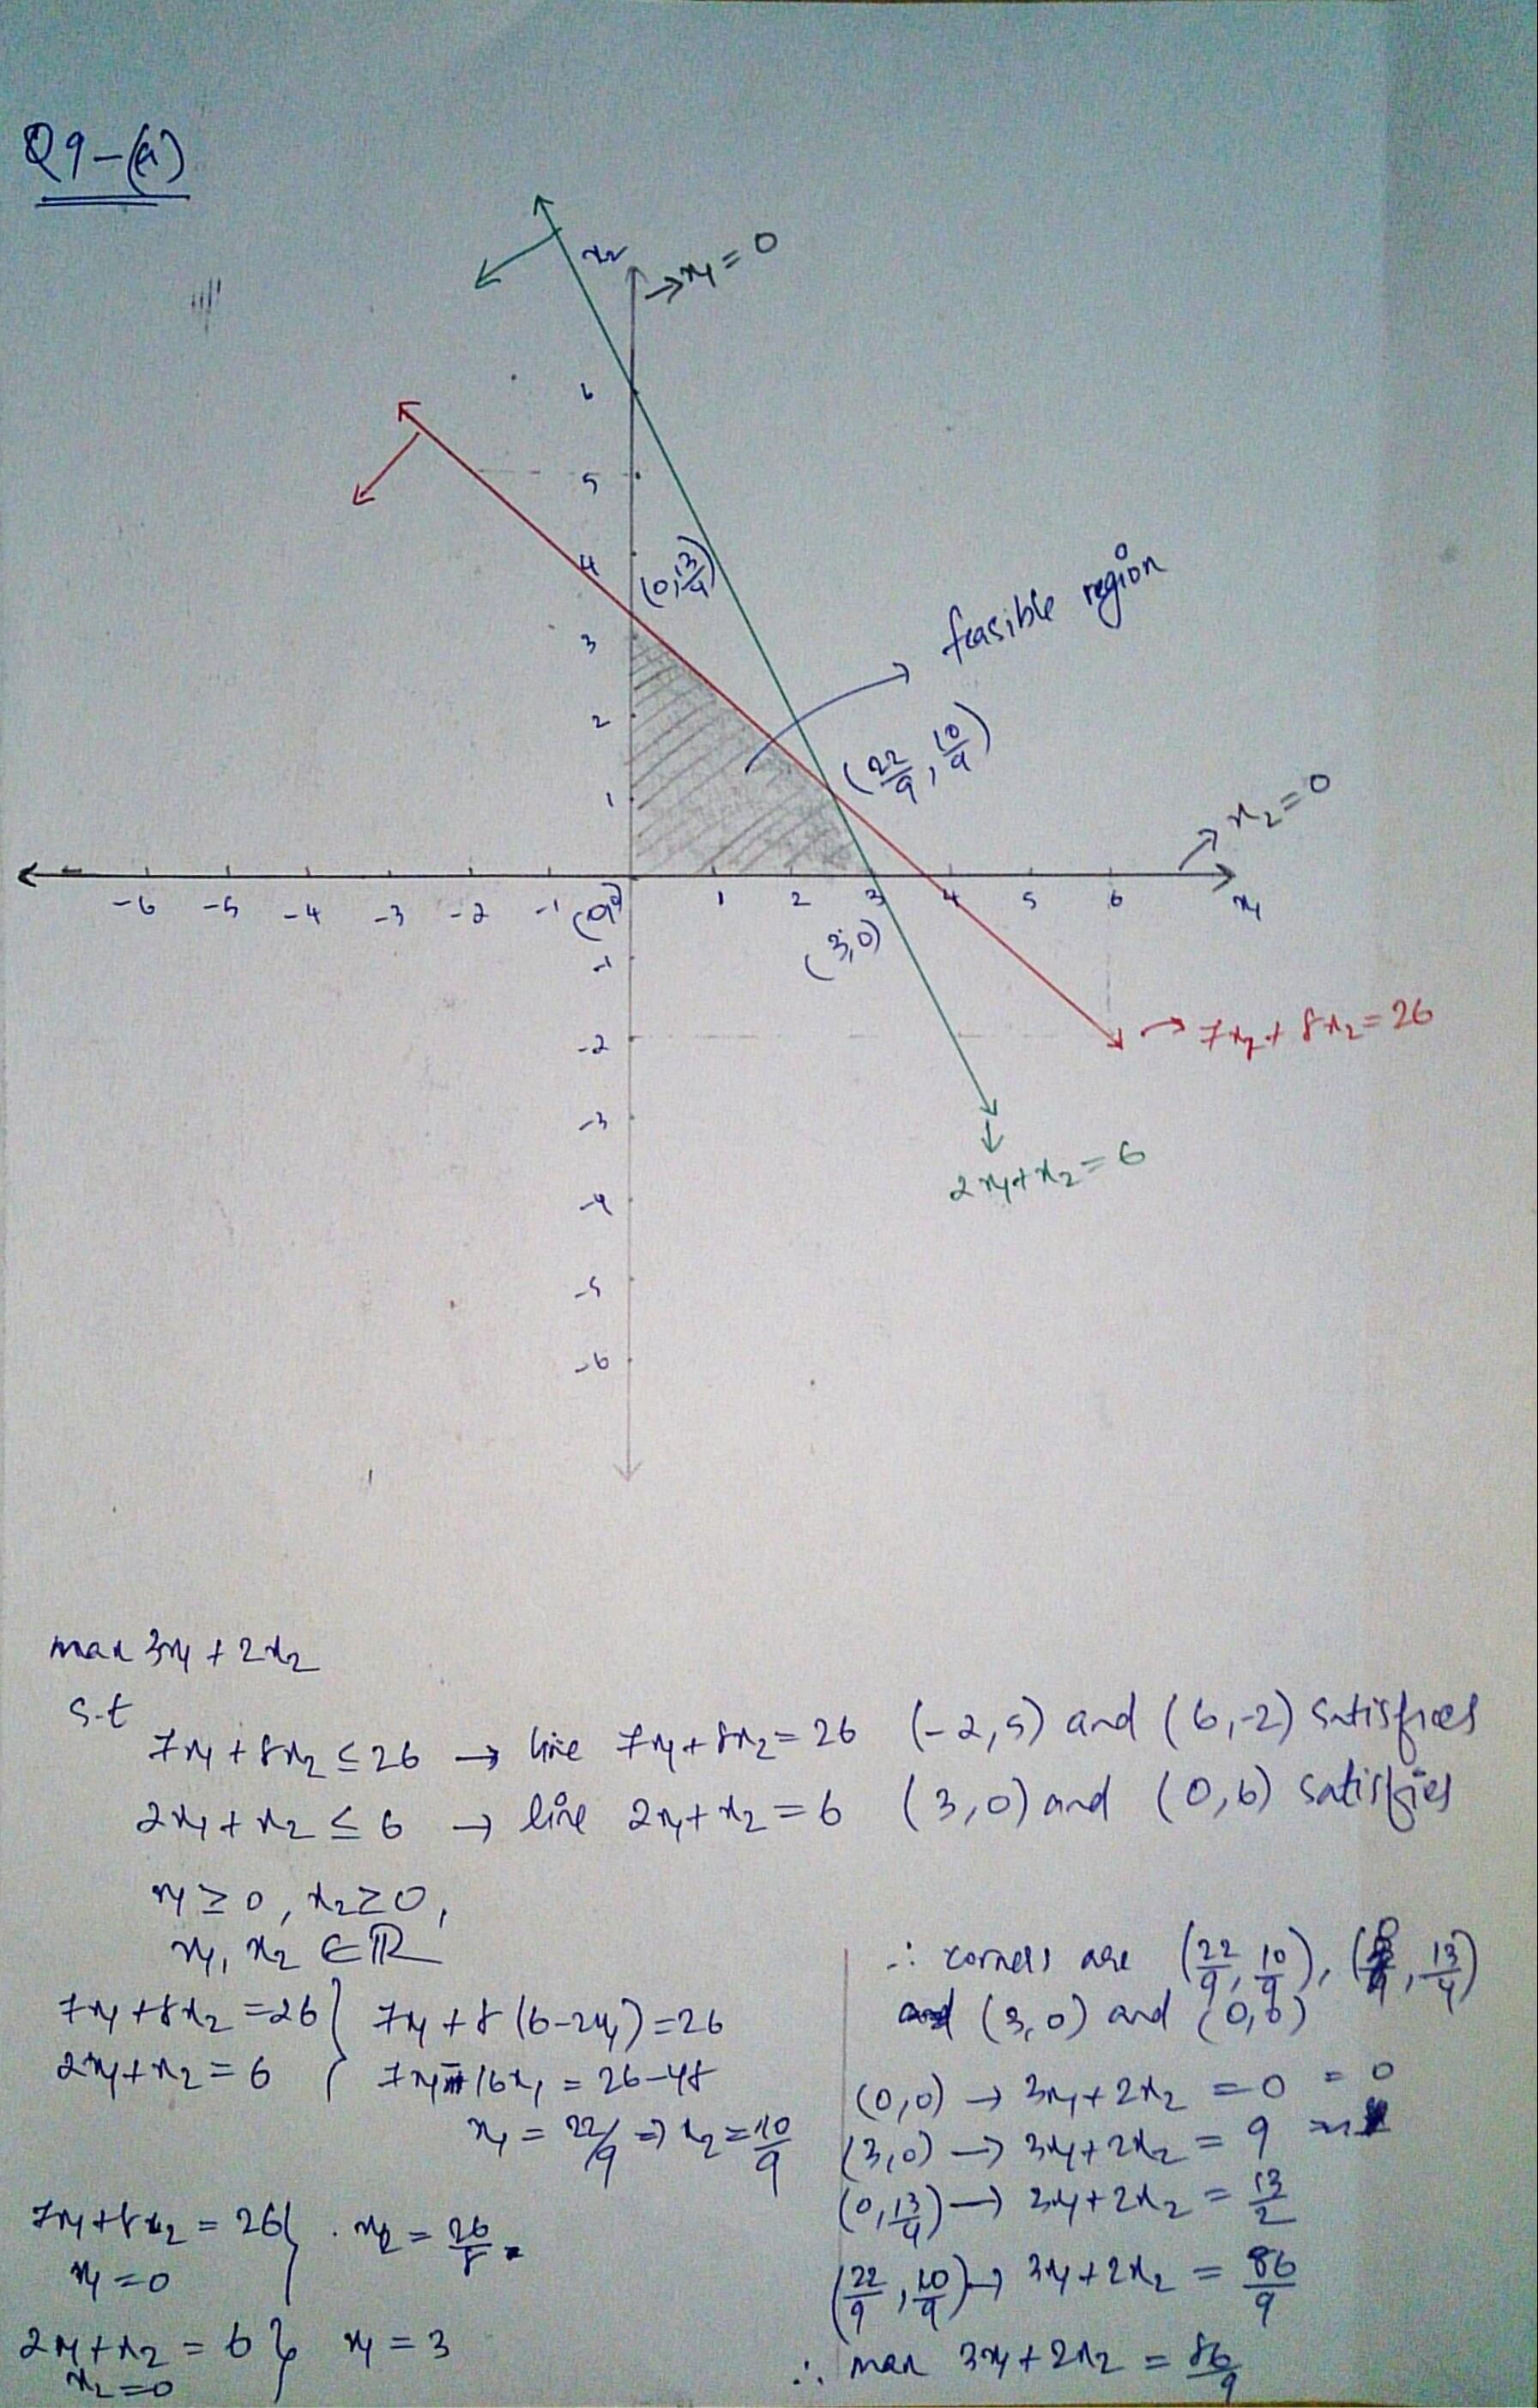 Q9-(a)
x₂
→ x₁ = 0
6
5
4
(0, 13/4)
3
feasible region
2
(22/9, 10/9)
1
x₂ = 0
-6 -5 -4 -3 -2 -1 (0,0) 1 2 3 4 5 6 x₁
(3,0)
-1
-2
→ 7x₁ + 8x₂ = 26
-3
2x₁ + x₂ = 6
-4
-5
-6
max 3x₁ + 2x₂
s.t
7x₁ + 8x₂ ≤ 26 → line 7x₁ + 8x₂ = 26 (-2,5) and (6,-2) satisfies
2x₁ + x₂ ≤ 6 → line 2x₁ + x₂ = 6 (3,0) and (0,6) satisfies
x₁ ≥ 0, x₂ ≥ 0,
x₁, x₂ ∈ ℝ
7x₁ + 8x₂ = 26 } 7x₁ + 8(6-2x₁) = 26
2x₁ + x₂ = 6 } 7x₁ - 16x₁ = 26-48
x₁ = 22/9 ⇒ x₂ = 10/9
7x₁ + 8x₂ = 26 } x₂ = 26/8
x₁ = 0
2x₁ + x₂ = 6 } x₁ = 3
x₂ = 0
∴ corners are (22/9, 10/9), (0, 13/4)
and (3,0) and (0,0)
(0,0) → 3x₁ + 2x₂ = 0 = 0
(3,0) → 3x₁ + 2x₂ = 9
(0, 13/4) → 3x₁ + 2x₂ = 13/2
(22/9, 10/9) → 3x₁ + 2x₂ = 86/9
∴ max 3x₁ + 2x₂ = 86/9